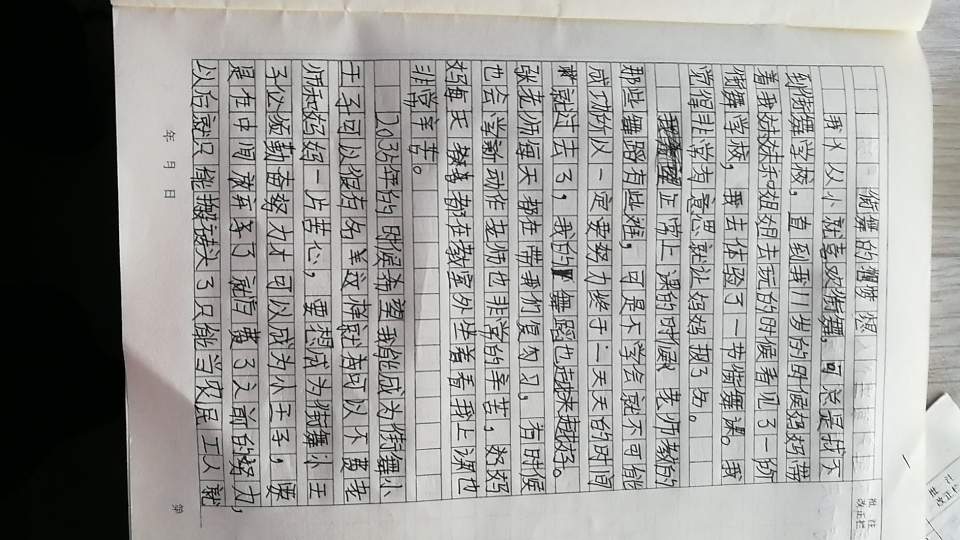 街舞的梦想
我从小就喜欢街舞,可总是找不
到街舞学校,直到我11岁的时候妈妈带
着我妹妹和姐姐去玩的时候看见了一所
街舞学校,我去体验了一节街舞课。我
觉得非常有意思就让妈妈报了名。
正常上课的时候,老师教的
那些舞蹈有些难,可是不学会就不可能
成功所以一定要努力终于一天天的时间
就过去了,我的舞蹈也越来越好。
张老师每天都在带我们复习,有时候
也会学新动作老师也非常的辛苦,妈妈
妈每天都在教室外坐着看我上课也
非常辛苦。
2035年的时候希望我能成为街舞小
王子可以很有名这样就可以不费老
师和妈妈一片苦心,要想成为街舞小王
子必须勤奋努力才可以成为小王子,要
是在中间放弃了就白费了之前的努力,
以后就只能搬砖头了只能当农民工人就
年 月 日
第
批注
改正栏
批注
改正栏